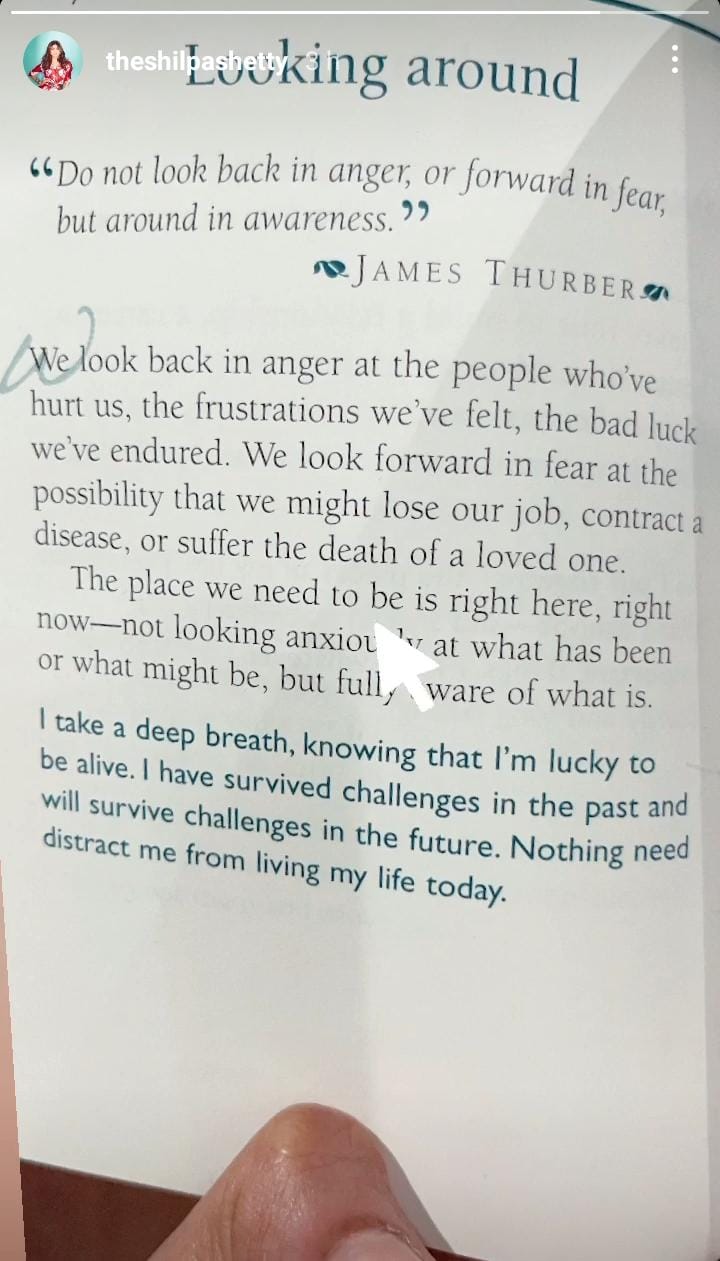 Looking around
theshilpashetty 3 h
“Do not look back in anger, or forward in fear,
but around in awareness.”
JAMES THURBER
We look back in anger at the people who’ve
hurt us, the frustrations we’ve felt, the bad luck
we’ve endured. We look forward in fear at the
possibility that we might lose our job, contract a
disease, or suffer the death of a loved one.
The place we need to be is right here, right
now—not looking anxiously at what has been
or what might be, but fully aware of what is.
I take a deep breath, knowing that I’m lucky to
be alive. I have survived challenges in the past and
will survive challenges in the future. Nothing need
distract me from living my life today.